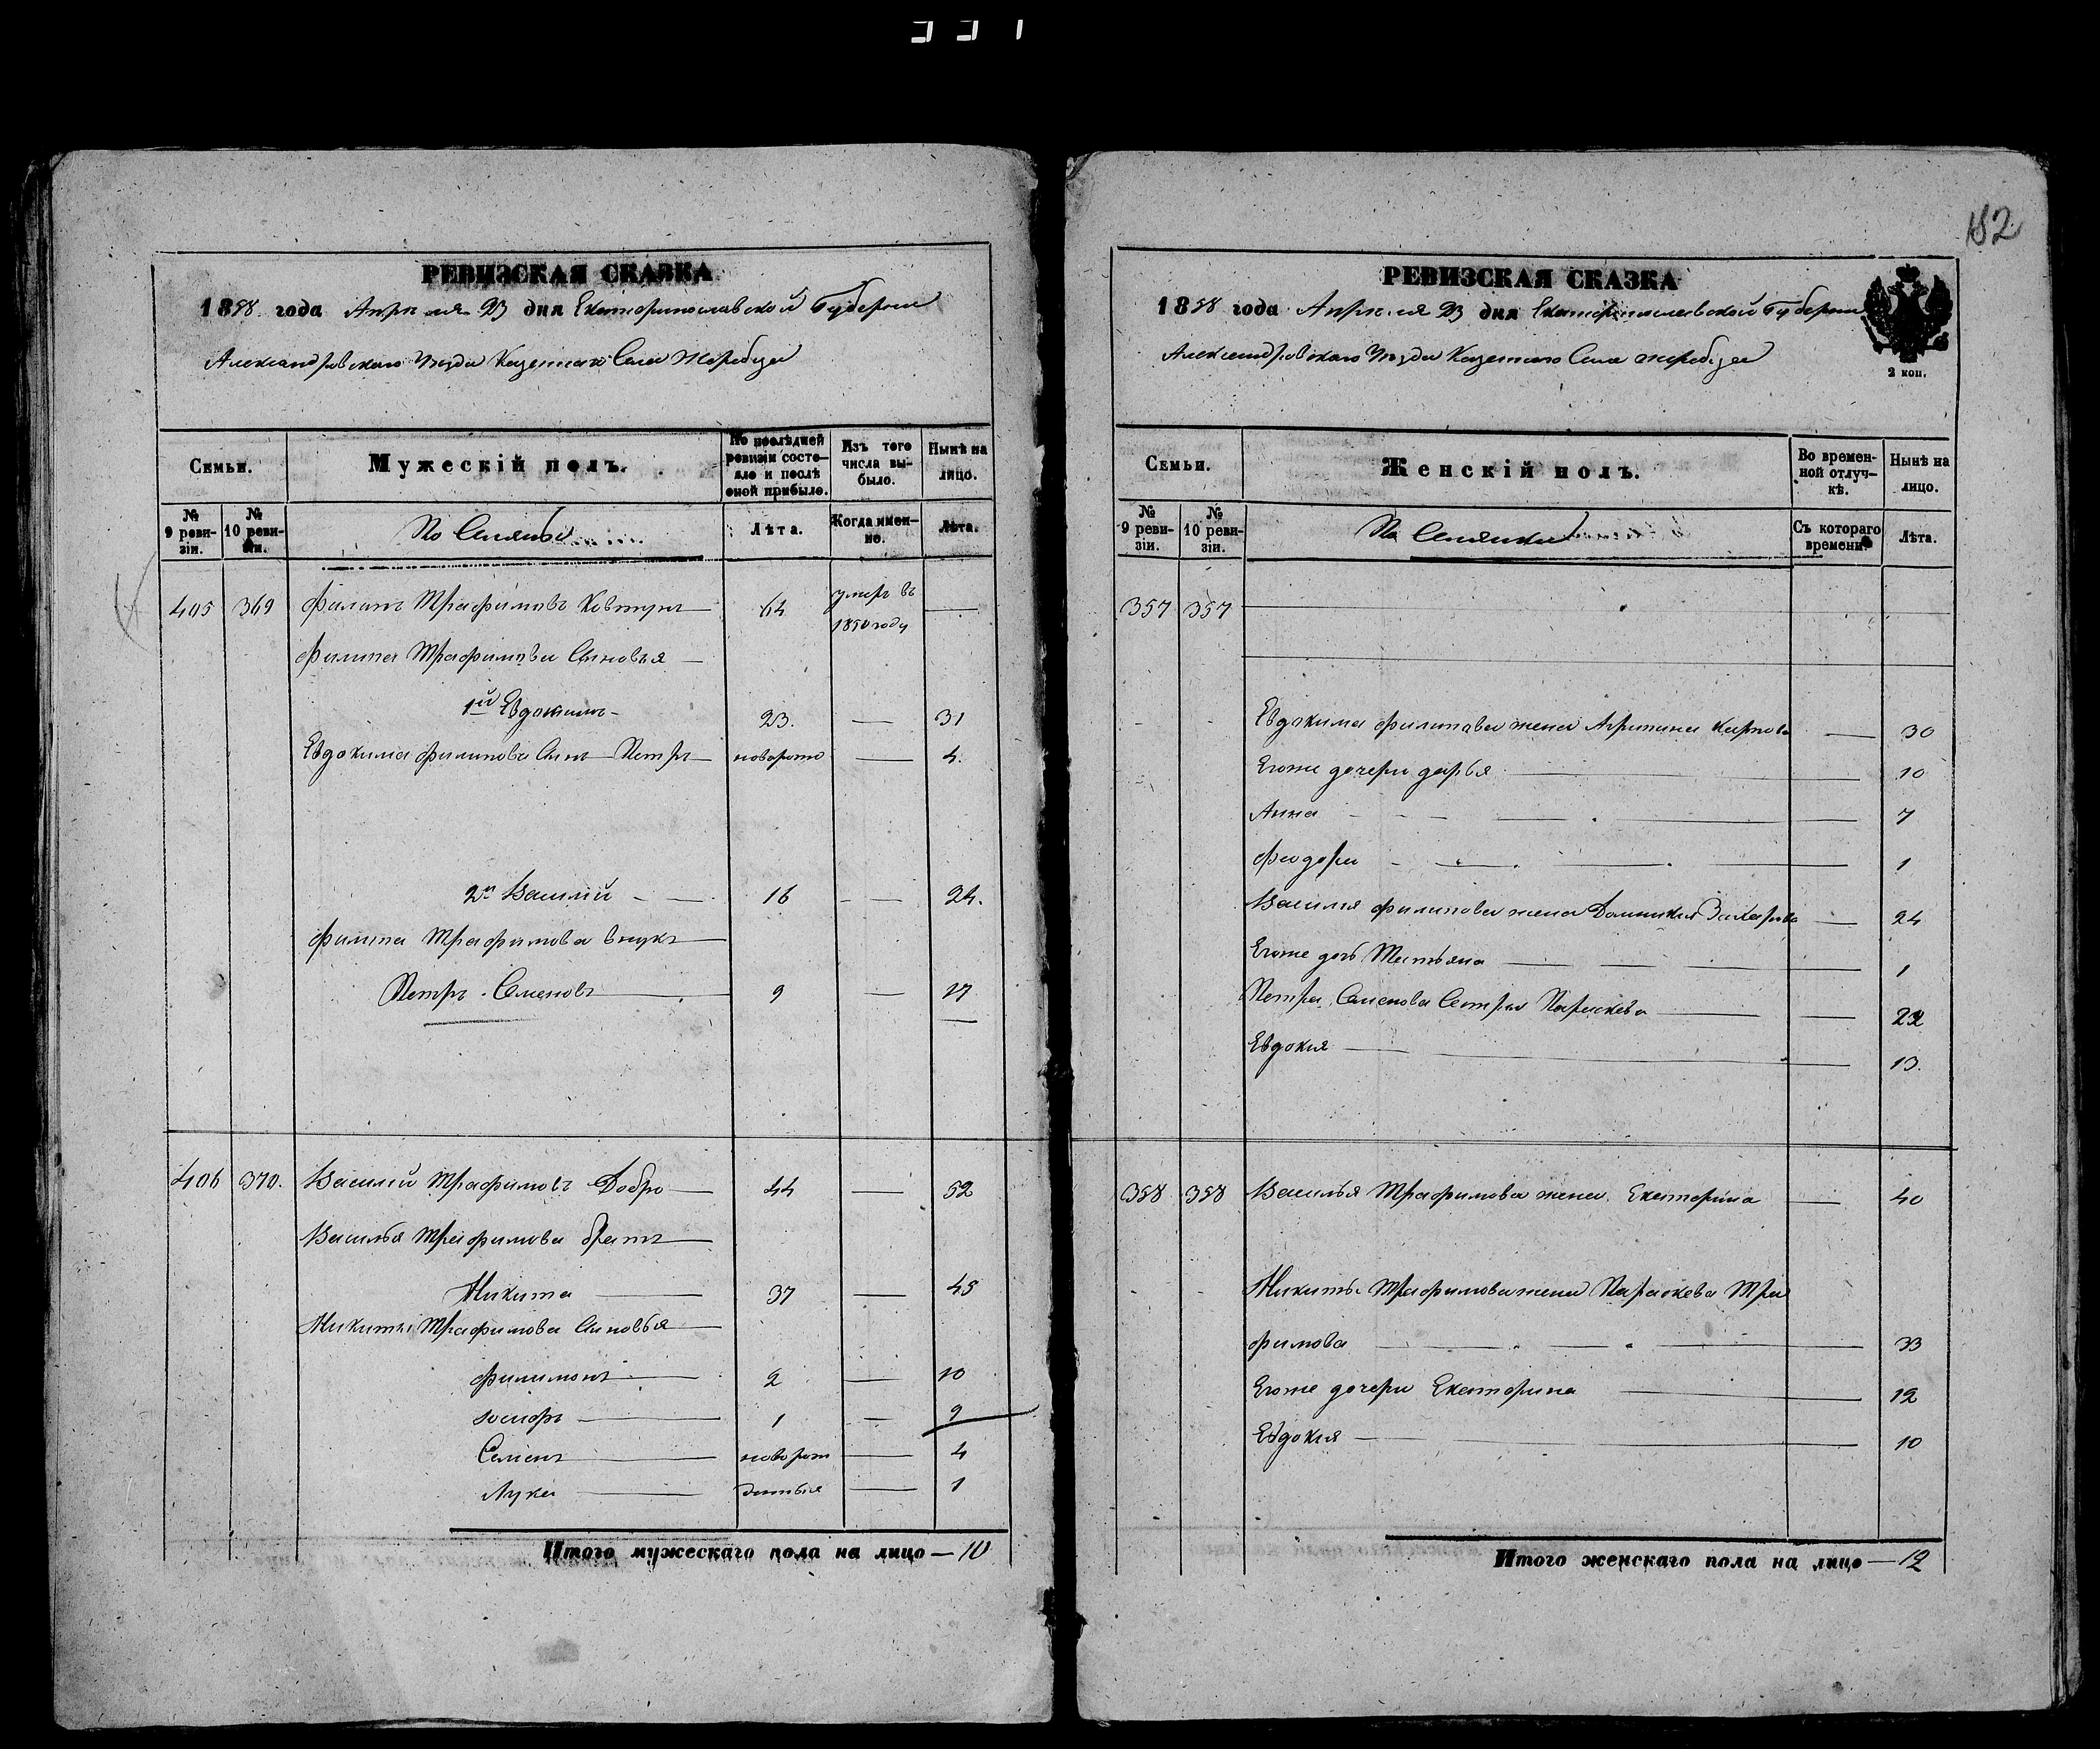 182
РЕВИЗСКАЯ СКАЗКА
1858 года Апреля 23 дня Екатеринославской Губернии
Александровскаго Уезда Казеннаго Села Жеребца
Семьи.
Мужескій полъ.
По послѣдней ревизіи состояло и послѣ оной прибыло.
Изъ того числа выбыло.
Нынѣ на лицо.
№ 9 ревизіи.
№ 10 ревизіи.
Лѣта.
Когда именно.
Лѣта.
405 369 Филипъ Трафимовъ Ковтунъ 64 умеръ въ 1850 году
Филипа Трафимова Сыновья
1й Евдокимъ 23. 31
Евдокима Филипова Сынъ Петръ новорож 4.
2й Василий 16 24.
Филипа Трафимова внукъ
Петръ Семеновъ 9 17
406 370. Василий Трафимовъ Добро 44 52
Василья Трафимова братъ
Микита 37 45
Микиты Трафимова Сыновья
Филимонъ 2 10
Иосифъ 1 9
Семенъ новорож 4
Лука 1
Итого мужескаго пола на лицо — 10
РЕВИЗСКАЯ СКАЗКА
1858 года Апреля 23 дня Екатеринославской Губернии
2 коп.
Александровскаго Уезда Казеннаго Села Жеребца
Семьи.
Женскій полъ.
Во временной отлучкѣ.
Нынѣ на лицо.
№ 9 ревизіи.
№ 10 ревизіи.
Съ котораго времени.
Лѣта.
357 357
Евдокима Филипова жена Агрипина Карпова 30
Егоже дочери дарья 10
Анна 7
Феодора 1
Василия Филипова жена Домникия Захарова 24
Егоже дочь Татьяна 1
Петра Семенова Сестра Параскева 22
Евдокия 13.
358 358 Василья Трафимова жена Екатерина 40
Микиты Трафимова жена Параскева Тра
фимова 33
Егоже дочери Екатерина 12
Евдокия 10
Итого женскаго пола на лицо — 12